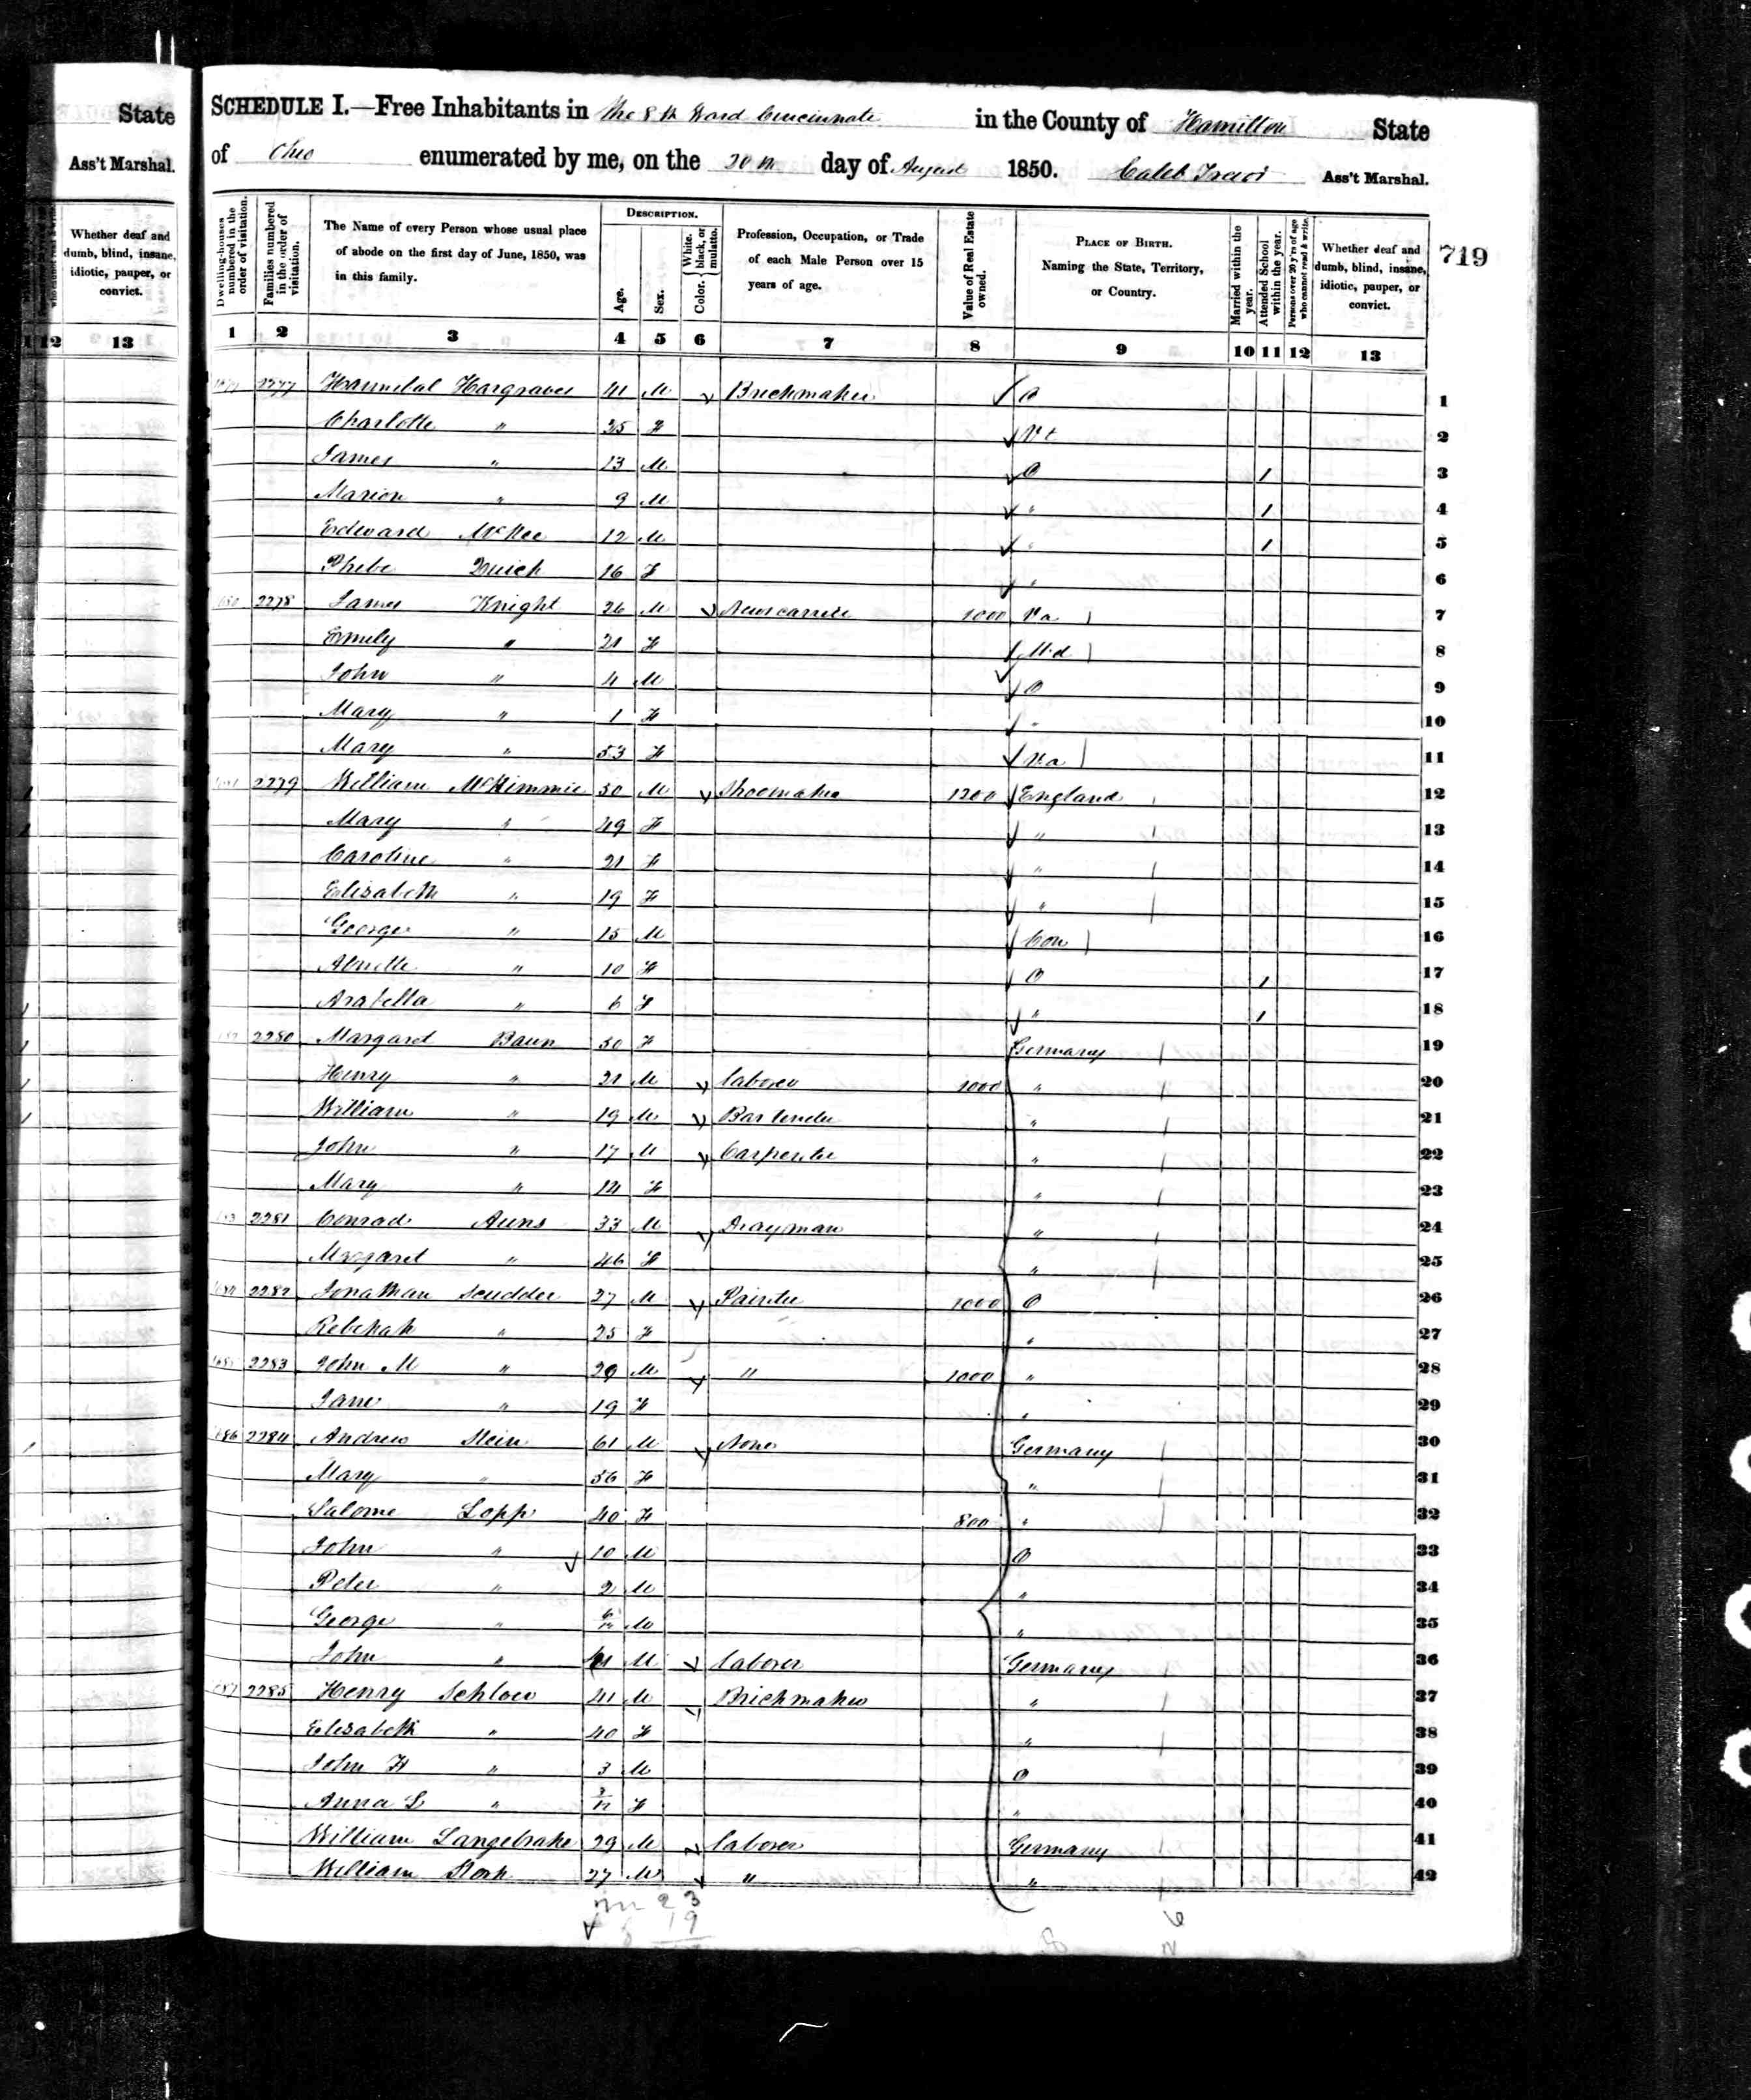 State
Ass't Marshal.
Whether deaf and dumb, blind, insane, idiotic, pauper, or convict.
12 13
SCHEDULE I.—Free Inhabitants in the 8th Ward Cincinnati in the County of Hamilton State
of Ohio enumerated by me, on the 20th day of August 1850. Caleb Ass't Marshal.
719
Dwelling-houses numbered in the order of visitation.
Families numbered in the order of visitation.
The Name of every Person whose usual place of abode on the first day of June, 1850, was in this family.
DESCRIPTION.
Age.
Sex.
Color. { White, black, or mulatto.
Profession, Occupation, or Trade of each Male Person over 15 years of age.
Value of Real Estate owned.
PLACE OF BIRTH. Naming the State, Territory, or Country.
Married within the year.
Attended School within the year.
Persons over 20 y'rs of age who cannot read & write.
Whether deaf and dumb, blind, insane, idiotic, pauper, or convict.
1 2 3 4 5 6 7 8 9 10 11 12 13
2277 Hannibal Hargraves 41 M Brickmaker O 1
Charlotte " 25 F Vt 2
James " 13 M O 1 3
Marion " 9 M " 1 4
Edward McKee 12 M " 1 5
Phebe 16 F " 6
2278 James Knight 26 M 1000 Va 7
Emily " 21 F Md 8
John " 4 M O 9
Mary " 1 F " 10
Mary " 53 F Va 11
2279 William McKimmie 50 M Shoemaker 1200 England 12
Mary " 49 F " 13
Caroline " 21 F " 14
Elizabeth " 19 F " 15
George " 15 M Con 16
" 10 F O 1 17
Arabella " 6 F " 1 18
2280 Margaret Baun 50 F Germany 19
Henry " 21 M Laborer 1000 " 20
William " 19 M Bartender " 21
John " 17 M Carpenter " 22
Mary " 14 F " 23
2281 Conrad Auns 33 M Drayman " 24
Margaret " 46 F " 25
1684 2282 Jonathan Scudder 27 M Painter 1000 O 26
Rebekah " 25 F " 27
1685 2283 John M " 29 M " 1000 " 28
Jane " 19 F " 29
1686 2284 Andrew Stein 61 M None Germany 30
Mary " 56 F " 31
Salome Lopp 40 F 800 " 32
John " 10 M O 33
Peter " 2 M " 34
George " M " 35
John " 41 M Laborer Germany 36
1687 2285 Henry Schloer 41 M Brickmaker " 37
Elizabeth " 40 F " 38
John H " 3 M O 39
Anna L " 3/12 F " 40
William Langebrake 29 M Laborer Germany 41
William Stork 27 M " " 42
m 23
19